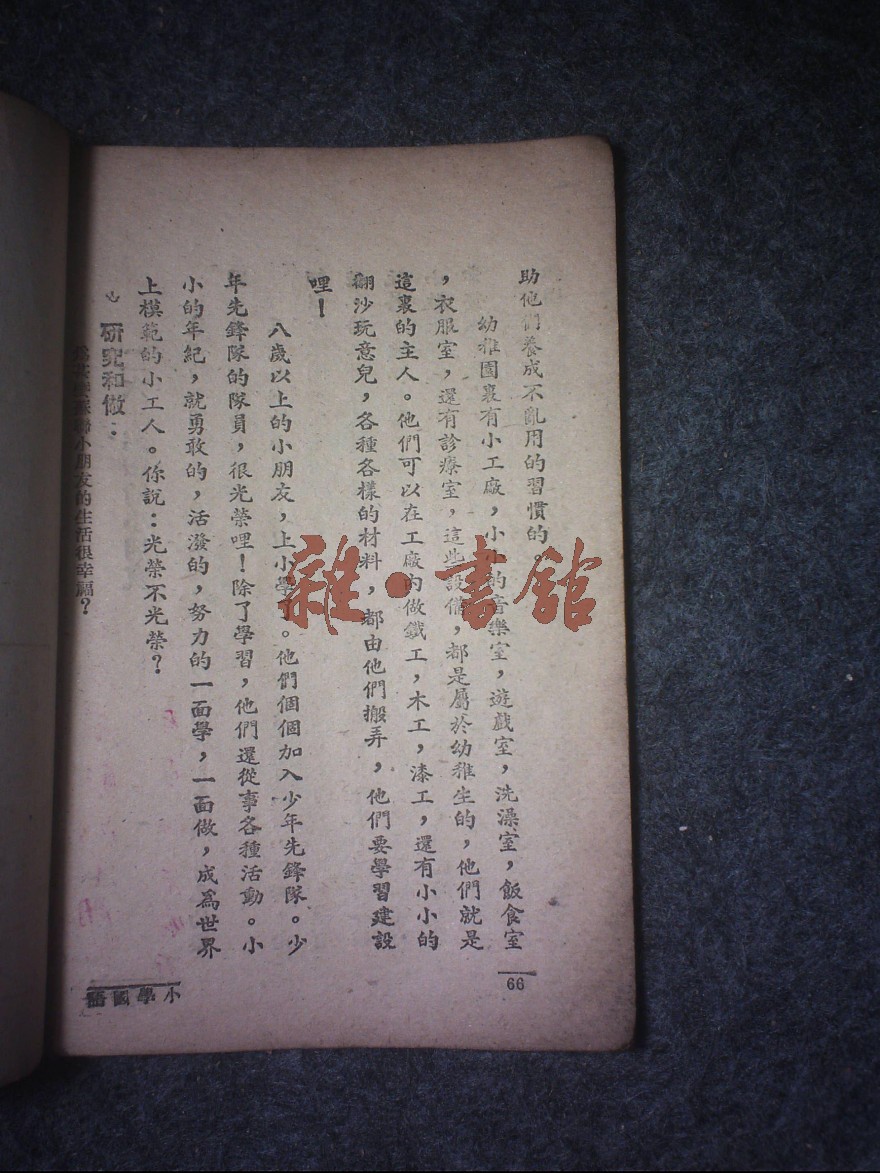 助他們養成不亂用的習慣的。
幼稚園裏有小工廠，小小的音樂室，遊戲室，洗澡室，飯食室
，衣服室，還有診療室，這些設備，都是屬於幼稚生的，他們就是
這裏的主人。他們可以在工廠內做鐵工，木工，漆工，還有小小的
翻沙玩意兒，各種各樣的材料，都由他們搬弄，他們要學習建設
哩！
八歲以上的小朋友，上小學了。他們個個加入少年先鋒隊。少
年先鋒隊的隊員，很光榮哩！除了學習，他們還從事各種活動。小
小的年紀，就勇敢的，活潑的，努力的一面學，一面做，成爲世界
上模範的小工人。你說：光榮不光榮？
研究和做：
小朋友的生活很幸福？
66
小學國語
雜·書館